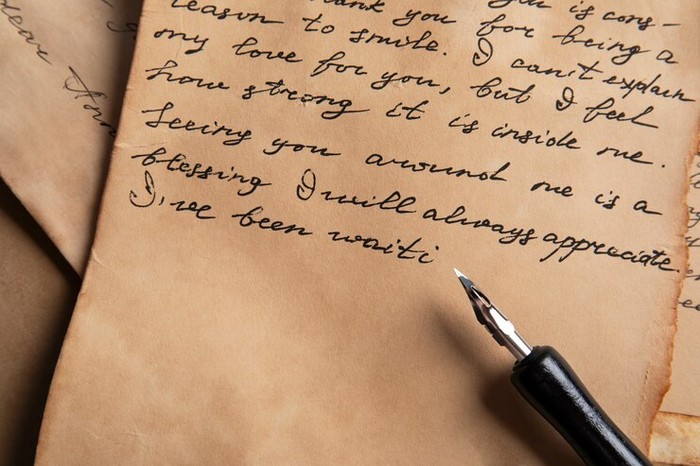 thank you is cons-
reason to smile. you for being a
my love for you, I can't explain
how strong it is inside me. but I feel
Seeing you around me is a
blessing I will always appreciate.
I've been waiti
Dear Ann